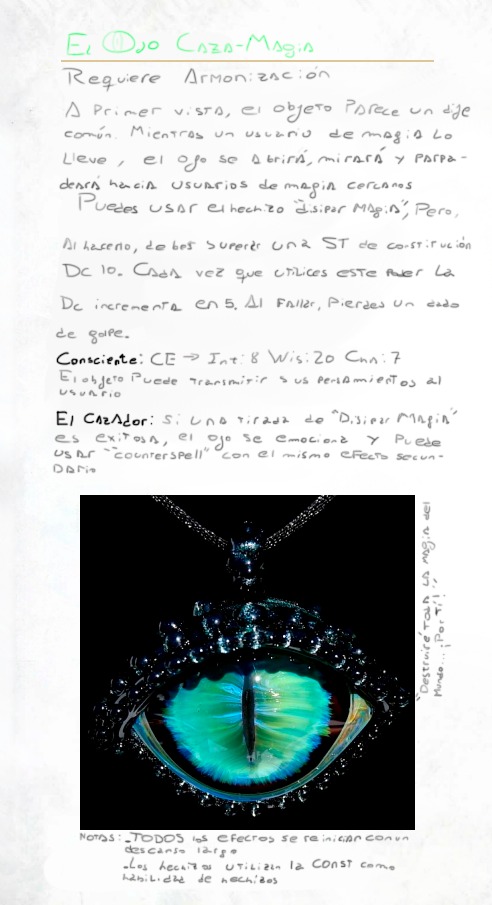 El Ojo Caza-Magia
Requiere Armonización
A Primer vista, el objeto Parece un dije
común. Mientras un usuario de magia lo
lleve, el ojo se abrirá, mirará y parpa-
deará hacia usuarios de magia cercanos
Puedes usar el hechizo "disipar Magia", Pero,
Al hacerlo, debes superar una ST de constitución
Dc 10. Cada vez que utilices este Poder La
Dc incrementa en 5. Al Fallar, Pierdes un dado
de golpe.
Consciente: CE → Int: 8 Wis: 20 Cha: 7
El objeto Puede transmitir sus pensamientos al
usuario
El Cazador: Si una tirada de "Disipar Magia"
es exitosa, el ojo se emociona y Puede
usar "counterspell" con el mismo efecto secun-
dario
"Destruiré toda la magia del
Mundo... ¡Por Ti!"
Notas: -TODOS los efectos se reinician con un
descanso largo
-Los hechizos utilizan la CONST como
habilidad de hechizos